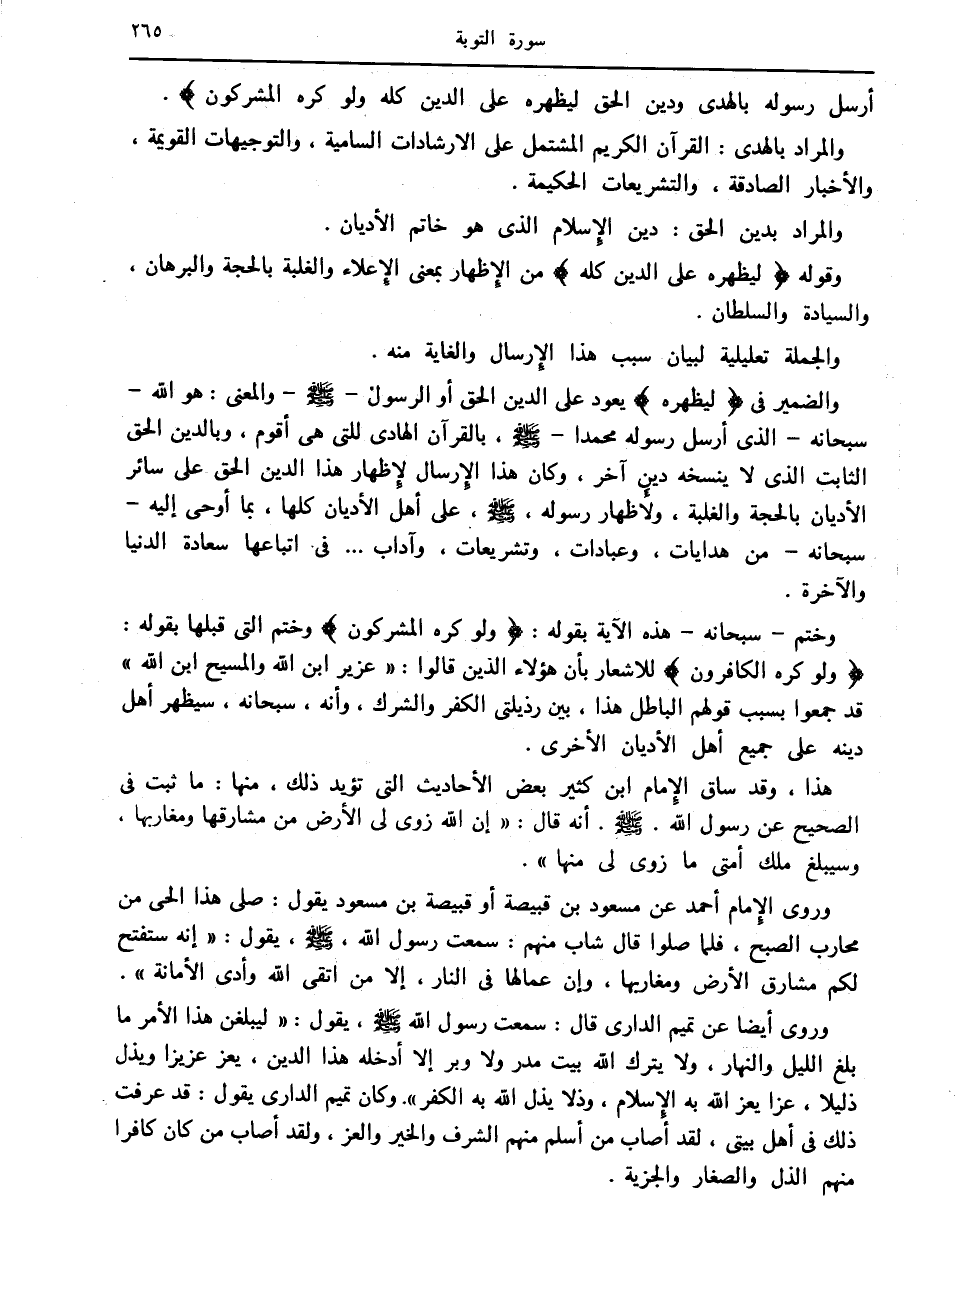 سورة التوبة ٢٦٥
أرسل رسوله بالهدى ودين الحق ليظهره على الدين كله ولو كره المشركون ﴾ .
والمراد بالهدى : القرآن الكريم المشتمل على الارشادات السامية ، والتوجيهات القويمة ،
والأخبار الصادقة ، والتشريعات الحكيمة .
والمراد بدين الحق : دين الإسلام الذى هو خاتم الأديان .
وقوله ﴿ ليظهره على الدين كله ﴾ من الإظهار بمعنى الإعلاء والغلبة بالحجة والبرهان ،
والسيادة والسلطان .
والجملة تعليلية لبيان سبب هذا الإرسال والغاية منه .
والضمير فى ﴿ ليظهره ﴾ يعود على الدين الحق أو الرسول - ﷺ - والمعنى : هو الله -
سبحانه - الذى أرسل رسوله محمدا - ﷺ ، بالقرآن الهادى للتى هى أقوم ، وبالدين الحق
الثابت الذى لا ينسخه دين آخر ، وكان هذا الإرسال لإظهار هذا الدين الحق على سائر
الأديان بالحجة والغلبة ، ولإظهار رسوله ، ﷺ ، على أهل الأديان كلها ، بما أوحى إليه -
سبحانه - من هدايات ، وعبادات ، وتشريعات ، وآداب ... فى اتباعها سعادة الدنيا
والآخرة .
وختم - سبحانه - هذه الآية بقوله : ﴿ ولو كره المشركون ﴾ وختم التى قبلها بقوله :
﴿ ولو كره الكافرون ﴾ للاشعار بأن هؤلاء الذين قالوا : « عزير ابن الله والمسيح ابن الله »
قد جمعوا بسبب قولهم الباطل هذا ، بين رذيلتى الكفر والشرك ، وأنه ، سبحانه ، سيظهر أهل
دينه على جميع أهل الأديان الأخرى .
هذا ، وقد ساق الإمام ابن كثير بعض الأحاديث التى تؤيد ذلك ، منها : ما ثبت فى
الصحيح عن رسول الله . ﷺ . أنه قال : « إن الله زوى لى الأرض من مشارقها ومغاربها ،
وسيبلغ ملك أمتى ما زوى لى منها » .
وروى الإمام أحمد عن مسعود بن قبيصة أو قبيصة بن مسعود يقول : صلى هذا الحى من
محارب الصبح ، فلما صلوا قال شاب منهم : سمعت رسول الله ، ﷺ ، يقول : « إنه ستفتح
لكم مشارق الأرض ومغاربها ، وإن عمالها فى النار ، إلا من اتقى الله وأدى الأمانة » .
وروى أيضا عن تميم الدارى قال : سمعت رسول الله ﷺ ، يقول : « ليبلغن هذا الأمر ما
بلغ الليل والنهار ، ولا يترك الله بيت مدر ولا وبر إلا أدخله هذا الدين ، يعز عزيزا ويذل
ذليلا ، عزا يعز الله به الإسلام ، وذلا يذل الله به الكفر ». وكان تميم الدارى يقول : قد عرفت
ذلك فى أهل بيتى ، لقد أصاب من أسلم منهم الشرف والخير والعز ، ولقد أصاب من كان كافرا
منهم الذل والصغار والجزية .